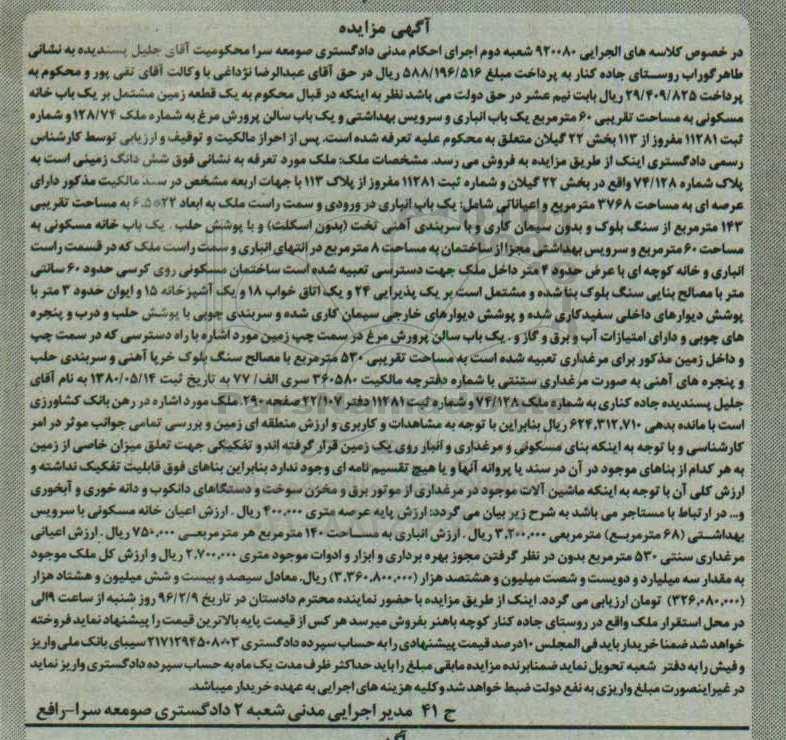 آگهی مزایده
در خصوص کلاسه های الجرایی ۹۲۰۰۸۰ شعبه دوم اجرای احکام مدنی دادگستری صومعه سرا محکومیت آقای جلیل پسندیده به نشانی
طاهرگوراب روستای جاده کنار به پرداخت مبلغ ۵۸۸/۱۹۶/۵۱۶ ریال در حق آقای عبدالرضا نژداغی با وکالت آقای تقی پور و محکوم به
پرداخت ۲۹/۴۰۹/۸۲۵ ریال بابت نیم عشر در حق دولت می باشد نظر به اینکه در قبال محکوم به یک قطعه زمین مشتمل بر یک باب خانه
مسکونی به مساحت تقریبی ۶۰ مترمربع یک باب انباری و سرویس بهداشتی و یک باب سالن پرورش مرغ به شماره ملک ۱۲۸/۷۴ و شماره
ثبت ۱۱۲۸۱ مفروز از ۱۱۳ بخش ۲۲ گیلان متعلق به محکوم علیه تعرفه شده است. پس از احراز مالکیت و توقیف و ارزیابی توسط کارشناس
رسمی دادگستری اینک از طریق مزایده به فروش می رسد. مشخصات ملک: ملک مورد تعرفه به نشانی فوق شش دانگ زمینی است به
پلاک شماره ۷۴/۱۲۸ واقع در بخش ۲۲ گیلان و شماره ثبت ۱۱۲۸۱ مفروز از پلاک ۱۱۳ با جهات اربعه مشخص در سند مالکیت مذکور دارای
عرصه ای به مساحت ۳۷۶۸ مترمربع و اعیاناتی شامل: یک باب انباری در ورودی و سمت راست ملک به ابعاد ۲۲*۶.۵ به مساحت تقریبی
۱۴۳ مترمربع از سنگ بلوک و بدون سیمان کاری و با سربندی آهنی تخت (بدون اسکلت) و با پوشش حلب . یک باب خانه مسکونی به
مساحت ۶۰ مترمربع و سرویس بهداشتی مجزا از ساختمان به مساحت ۸ مترمربع در انتهای انباری و سمت راست ملک که در قسمت راست
انباری و خانه کوچه ای با عرض حدود ۴ متر داخل ملک جهت دسترسی تعبیه شده است ساختمان مسکونی روی کرسی حدود ۶۰ سانتی
متر با مصالح بنایی سنگ بلوک بنا شده و مشتمل است بر یک پذیرایی ۲۴ و یک اتاق خواب ۱۸ و یک آشپزخانه ۱۵ و ایوان حدود ۳ متر با
پوشش دیوارهای داخلی سفیدکاری شده و پوشش دیوارهای خارجی سیمان کاری شده و سربندی چوبی با پوشش حلب و درب و پنجره
های چوبی و دارای امتیازات آب و برق و گاز و . یک باب سالن پرورش مرغ در سمت چپ زمین مورد اشاره با راه دسترسی که در سمت چپ
و داخل زمین مذکور برای مرغداری تعبیه شده است به مساحت تقریبی ۵۳۰ مترمربع با مصالح سنگ بلوک خرپا آهنی و سربندی حلب
و پنجره های آهنی به صورت مرغداری سنتنی با شماره دفترچه مالکیت ۳۶۰۵۸۰ سری الف/ ۷۷ به تاریخ ثبت ۱۳۸۰/۰۵/۱۴ به نام آقای
جلیل پسندیده جاده کناری به شماره ملک ۷۴/۱۲۸ و شماره ثبت ۱۱۲۸۱ دفتر ۲۲/۱۰۷ صفحه ۲۹۰. ملک مورد اشاره در رهن بانک کشاورزی
است با مانده بدهی ۶۲۴,۳۱۲,۷۱۰ ریال بنابراین با توجه به مشاهدات و کاربری و ارزش منطقه ای زمین و بررسی تمامی جوانب موثر در امر
کارشناسی و با توجه به اینکه بنای مسکونی و مرغداری و انبار روی یک زمین قرار گرفته اند و تفکیکی جهت تعلق میزان خاصی از زمین
به هر کدام از بناهای موجود در آن در سند یا پروانه آنها و یا هیچ تقسیم نامه ای وجود ندارد بنابراین بناهای فوق قابلیت تفکیک نداشته و
ارزش کلی آن با توجه به اینکه ماشین آلات موجود در مرغداری از موتور برق و مخزن سوخت و دستگاهای دانکوب و دانه خوری و آبخوری
و... در ارتباط با مستاجر می باشد به شرح زیر بیان می گردد: ارزش پایه عرصه متری ۴۰۰,۰۰۰ ریال . ارزش اعیان خانه مسکونی با سرویس
بهداشتی (۶۸ مترمربع) مترمربعی ۳,۲۰۰,۰۰۰ ریال . ارزش انباری به مساحت ۱۴۰ مترمربع هر مترمربعی ۷۵۰,۰۰۰ ریال . ارزش اعیانی
مرغداری سنتی ۵۳۰ مترمربع بدون در نظر گرفتن مجوز بهره برداری و ابزار و ادوات موجود متری ۲,۷۰۰,۰۰۰ ریال و ارزش کل ملک موجود
به مقدار سه میلیارد و دویست و شصت میلیون و هشتصد هزار (۳,۳۶۰,۸۰۰,۰۰۰) ریال. معادل سیصد و بیست و شش میلیون و هشتاد هزار
(۳۲۶,۰۸۰,۰۰۰) تومان ارزیابی می گردد. اینک از طریق مزایده با حضور نماینده محترم دادستان در تاریخ ۹۶/۲/۹ روز شنبه از ساعت ۹ الی
در محل استقرار ملک واقع در روستای جاده کنار کوچه باهنر بفروش میرسد هر کس از قیمت پایه بالاترین قیمت را پیشنهاد نماید فروخته
خواهد شد ضمنا خریدار باید فی المجلس ۱۰درصد قیمت پیشنهادی را به حساب سپرده دادگستری ۲۱۷۱۲۹۴۵۰۸۰۰۳ سیبای بانک ملی واریز
و فیش را به دفتر شعبه تحویل نماید ضمنا برنده مزایده مابقی مبلغ را باید حداکثر ظرف مدت یک ماه به حساب سپرده دادگستری واریز نماید
در غیر اینصورت مبلغ واریزی به نفع دولت ضبط خواهد شد و کلیه هزینه های اجرایی به عهده خریدار میباشد.
ج ۴۱ مدیر اجرایی مدنی شعبه ۲ دادگستری صومعه سرا-رافع